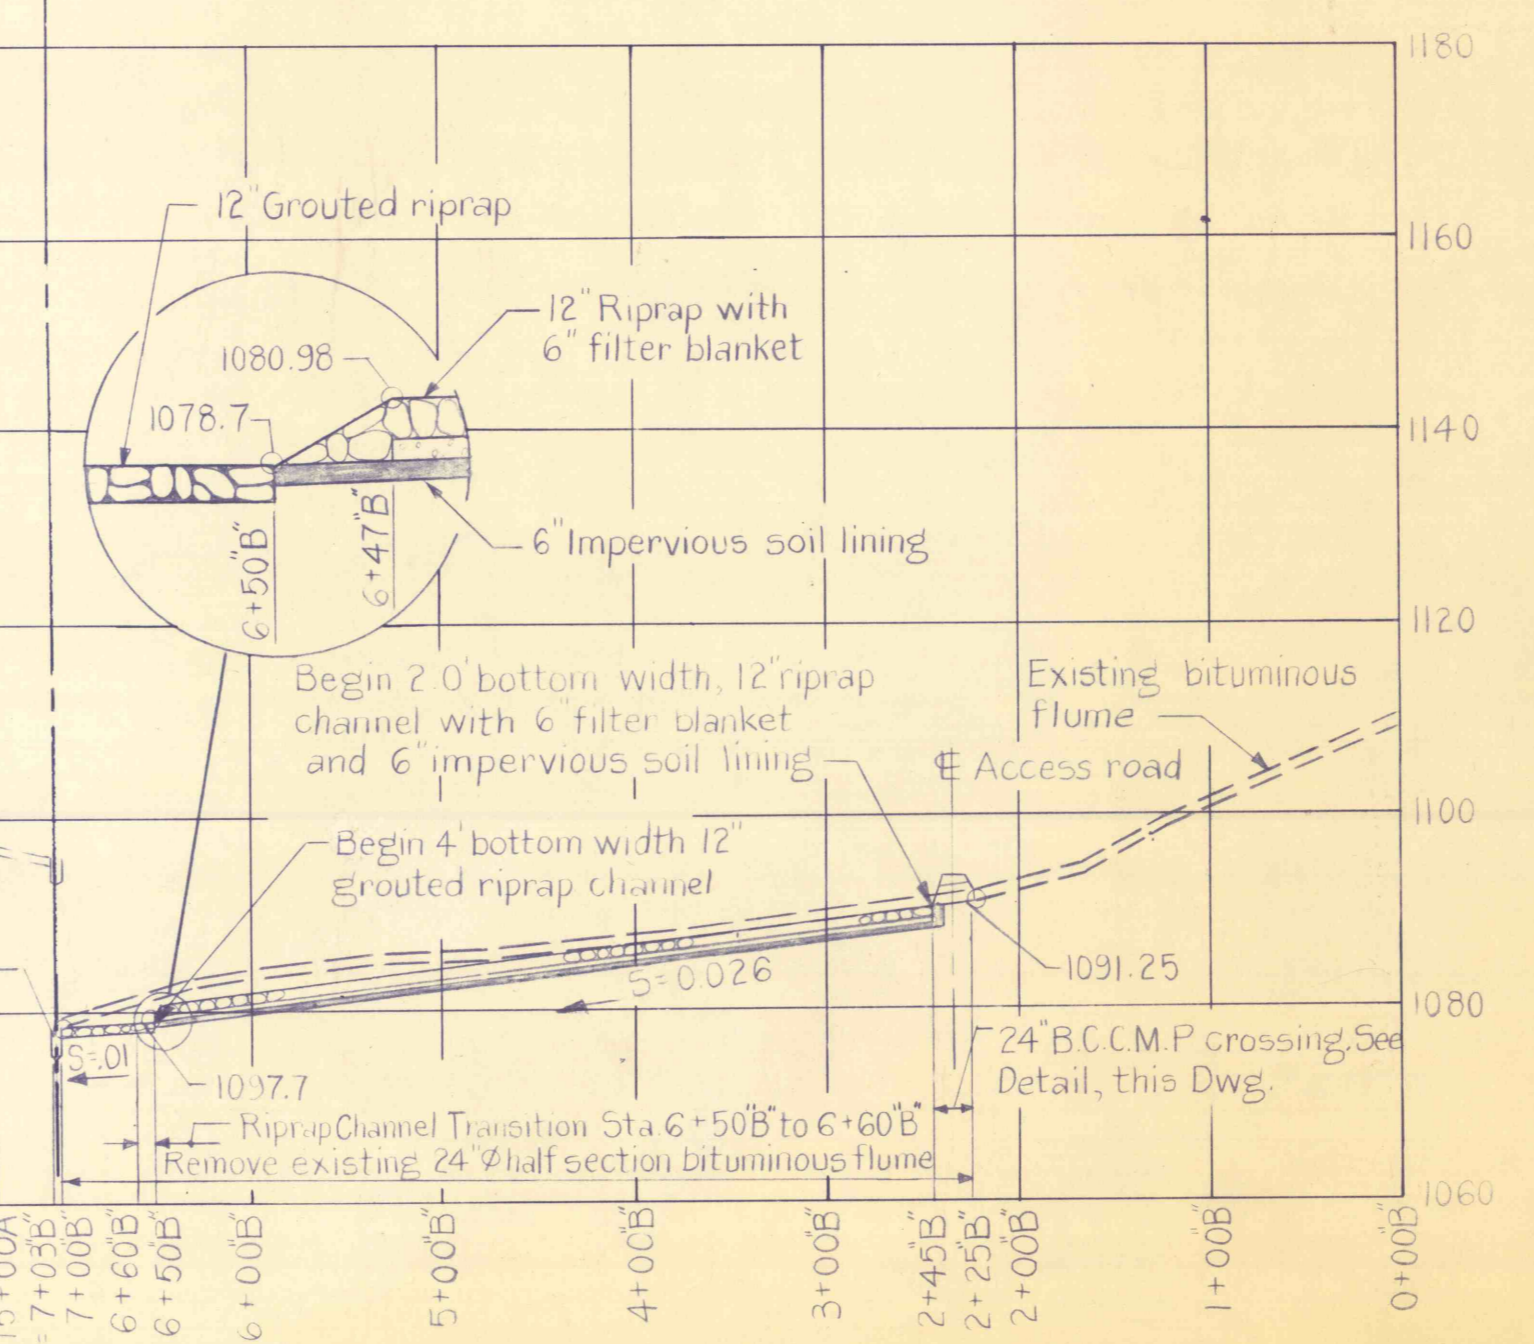 1180
12" Grouted riprap
1160
12" Riprap with
6" filter blanket
1080.98
1078.7
1140
6" Impervious soil lining
6+50"B"
6+47"B"
1120
Begin 2.0' bottom width, 12" riprap
channel with 6" filter blanket
and 6" impervious soil lining
Existing bituminous
flume
℄ Access road
1100
Begin 4' bottom width 12"
grouted riprap channel
1091.25
S=0.026
1080
S=.01
1097.7
24" B.C.C.M.P crossing. See
Detail, this Dwg.
Riprap Channel Transition Sta. 6+50"B" to 6+60"B"
Remove existing 24" Ø half section bituminous flume
1060
= 7+03"B"
7+00"B"
6+60"B"
6+50"B"
6+00"B"
5+00"B"
4+00"B"
3+00"B"
2+45"B"
2+25"B"
2+00"B"
1+00"B"
0+00"B"